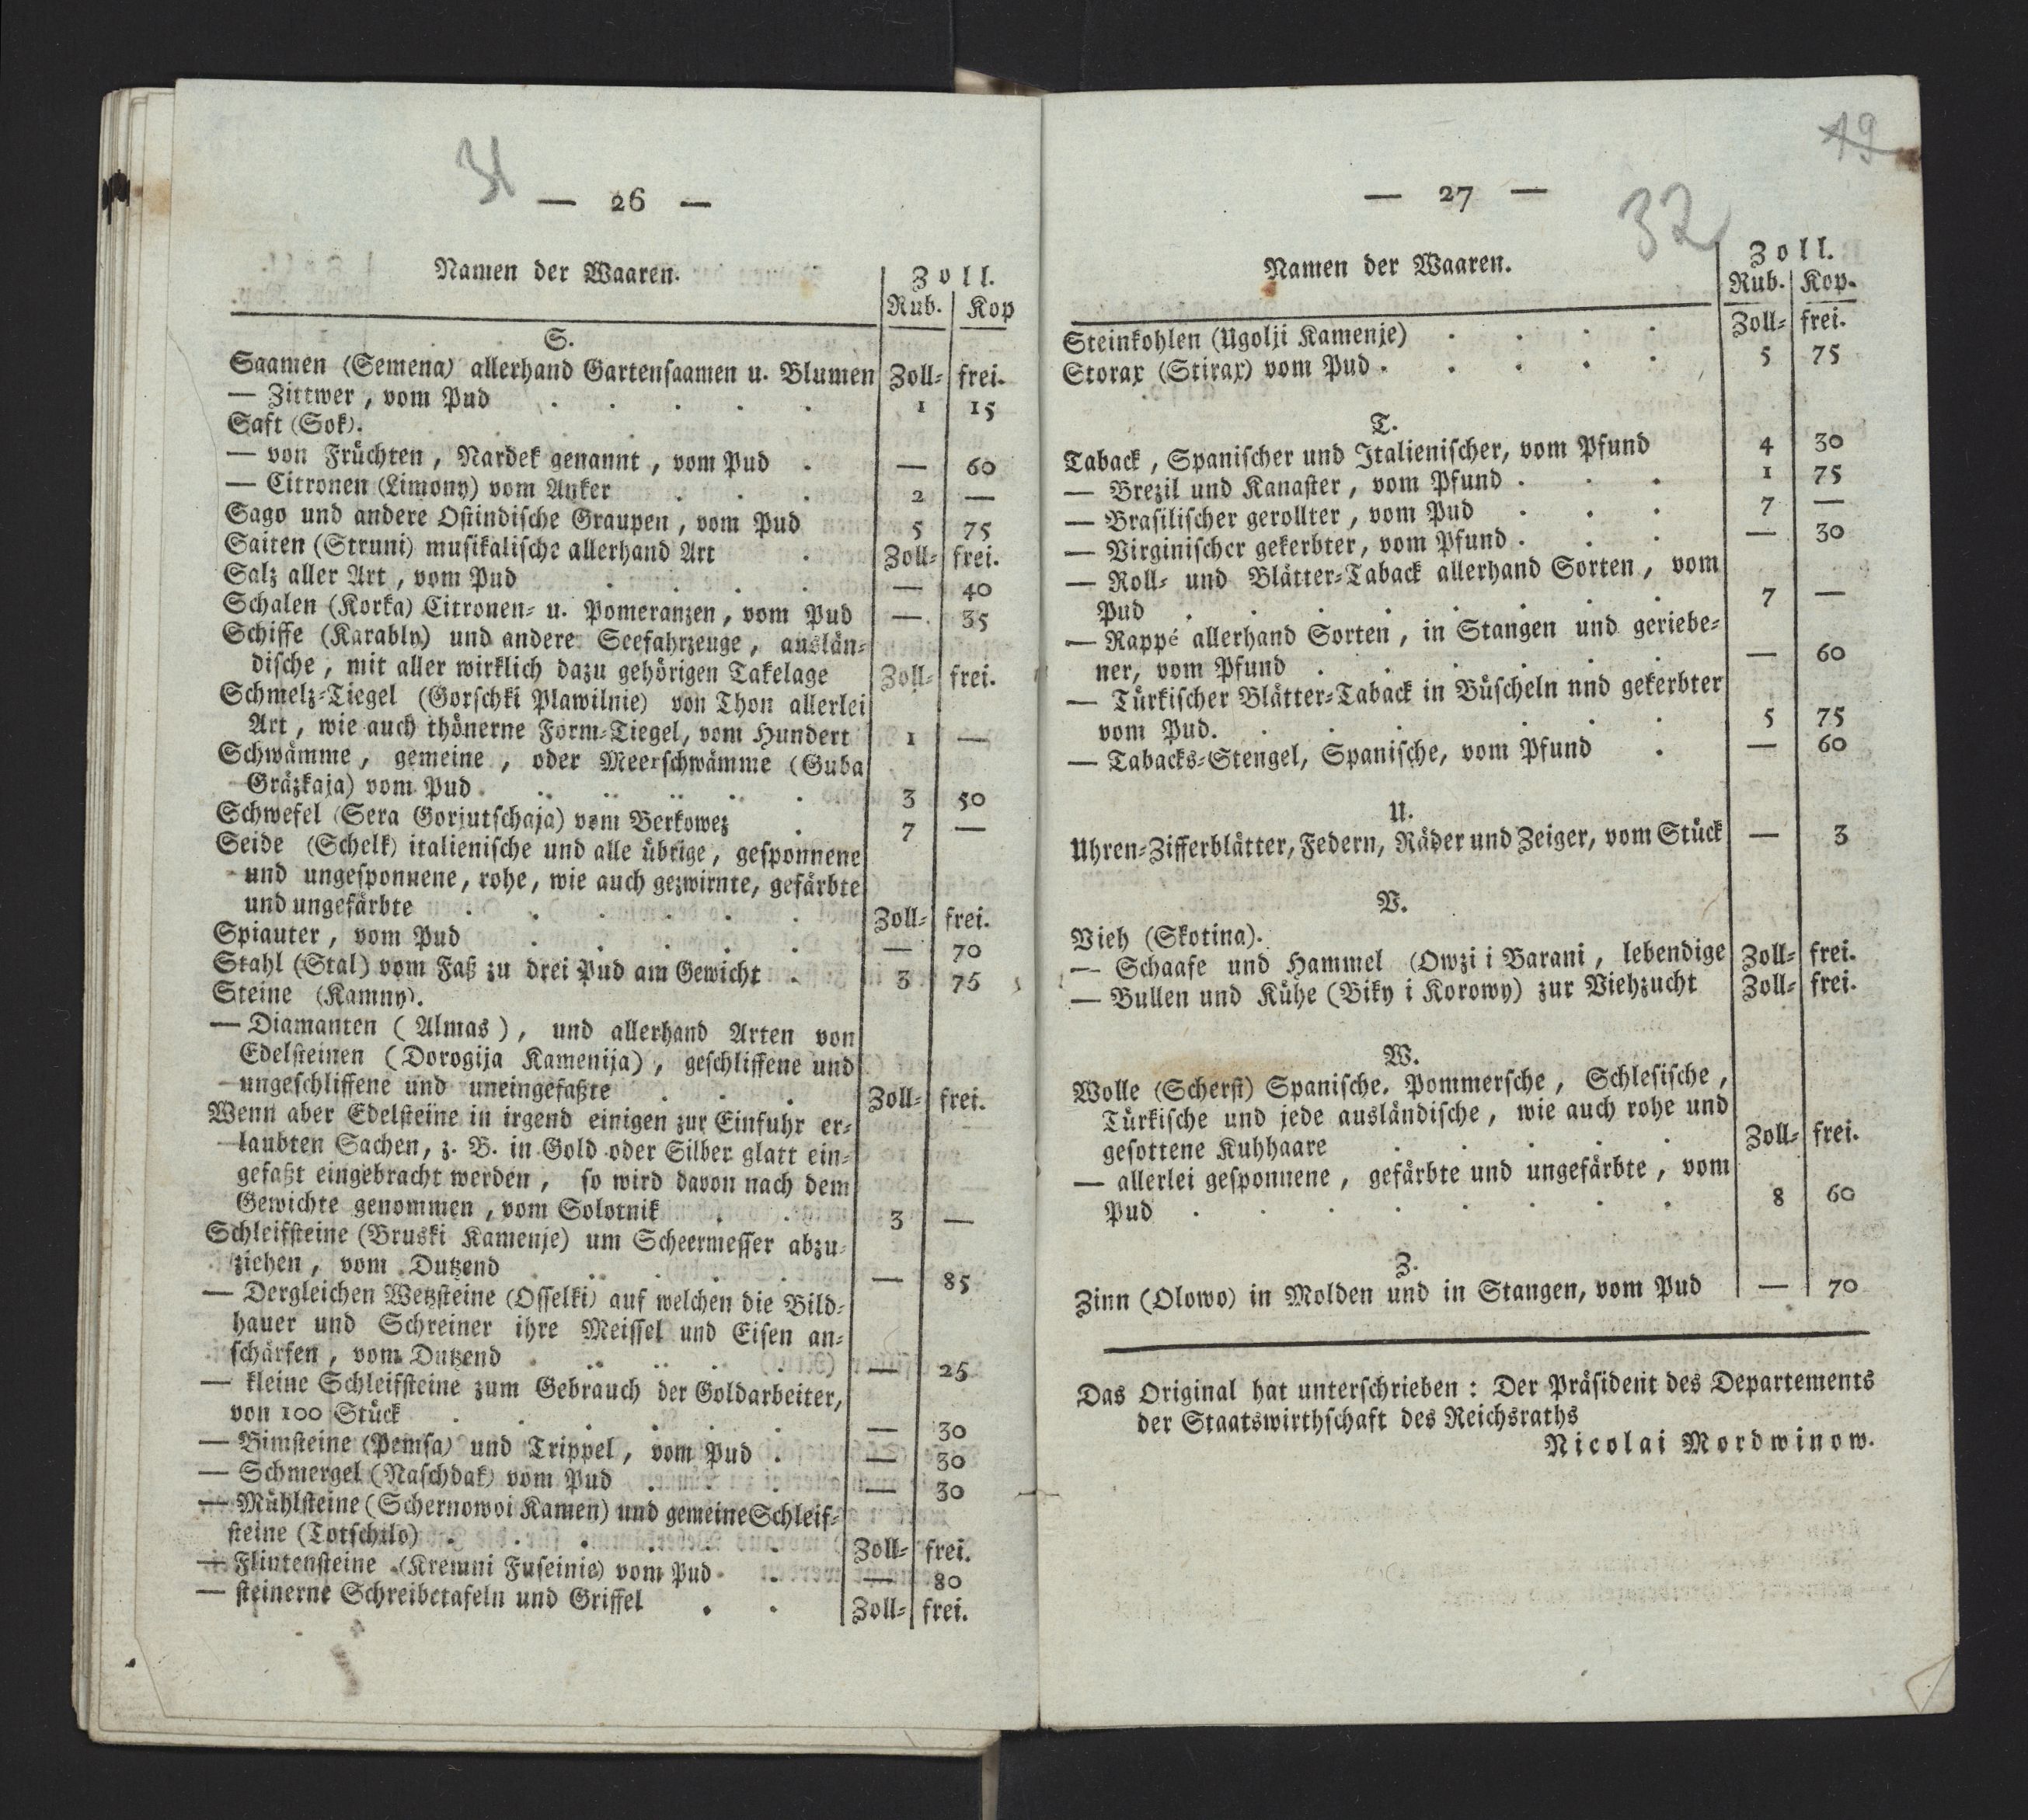 31
— 26 —
Namen der Waaren.
Zoll.
Rub. Kop
S.
Saamen (Semena) allerhand Gartensaamen u. Blumen Zoll- frei.
— Zittwer, vom Pud . . . . . 1 15
Saft (Sok).
— von Früchten, Nardek genannt, vom Pud . — 60
— Citronen (Limony) vom Anker . . . 2 —
Sago und andere Ostindische Graupen, vom Pud 5 75
Saiten (Struni) musikalische allerhand Art . Zoll- frei.
Salz aller Art, vom Pud . . . . — 40
Schalen (Korka) Citronen- u. Pomeranzen, vom Pud — 35
Schiffe (Karably) und andere Seefahrzeuge, auslän-
dische, mit aller wirklich dazu gehörigen Takelage Zoll- frei.
Schmelz-Tiegel (Gorschki Plawilnie) von Thon allerlei
Art, wie auch thönerne Form-Tiegel, vom Hundert 1 —
Schwämme, gemeine, oder Meerschwämme (Guba
Gräzkaja) vom Pud . . . . . 3 50
Schwefel (Sera Gorjutschaja) vom Berkowez . 7 —
Seide (Schelk) italienische und alle übrige, gesponnene
und ungesponnene, rohe, wie auch gezwirnte, gefärbte
und ungefärbte . . . . . . Zoll- frei.
Spiauter, vom Pud . . . . . — 70
Stahl (Stal) vom Faß zu drei Pud am Gewicht . 3 75
Steine (Kamny).
— Diamanten (Almas), und allerhand Arten von
Edelsteinen (Dorogija Kamenija), geschliffene und
ungeschliffene und uneingefaßte . . . Zoll- frei.
Wenn aber Edelsteine in irgend einigen zur Einfuhr er-
laubten Sachen, z. B. in Gold oder Silber glatt ein-
gefaßt eingebracht werden, so wird davon nach dem
Gewichte genommen, vom Solotnik . . 3 —
Schleifsteine (Bruski Kamenje) um Scheermesser abzu-
ziehen, vom Dutzend . . . . . — 85
— Dergleichen Wetzsteine (Osselki) auf welchen die Bild-
hauer und Schreiner ihre Meissel und Eisen an-
schärfen, vom Dutzend . . . . . — 25
— kleine Schleifsteine zum Gebrauch der Goldarbeiter,
von 100 Stück . . . . . . — 30
— Bimsteine (Pemsa) und Trippel, vom Pud . — 30
— Schmergel (Naschdak) vom Pud . . . — 30
— Mühlsteine (Schernowoi Kamen) und gemeine Schleif-
steine (Totschilo) . . . . . . Zoll- frei.
— Flintensteine (Kremni Fuseinie) vom Pud . — 80
— steinerne Schreibetafeln und Griffel . . Zoll- frei.
19
— 27 —
32
Namen der Waaren.
Zoll.
Rub. Kop.
Steinkohlen (Ugolji Kamenje) . . . . Zoll- frei.
Storax (Stirax) vom Pud . . . . . 5 75
T.
Taback, Spanischer und Italienischer, vom Pfund 4 30
— Brezil und Kanaster, vom Pfund . . . 1 75
— Brasilischer gerollter, vom Pud . . . 7 —
— Virginischer gekerbter, vom Pfund . . . — 30
— Roll- und Blätter-Taback allerhand Sorten, vom
Pud . . . . . . . . 7 —
— Rappé allerhand Sorten, in Stangen und geriebe-
ner, vom Pfund . . . . . . — 60
— Türkischer Blätter-Taback in Büscheln nnd gekerbter
vom Pud. . . . . . . . 5 75
— Tabacks-Stengel, Spanische, vom Pfund . — 60
U.
Uhren-Zifferblätter, Federn, Räder und Zeiger, vom Stück — 3
V.
Vieh (Skotina).
— Schaafe und Hammel (Owzi i Barani, lebendige Zoll- frei.
— Bullen und Kühe (Biky i Korowy) zur Viehzucht Zoll- frei.
W.
Wolle (Scherst) Spanische, Pommersche, Schlesische,
Türkische und jede ausländische, wie auch rohe und
gesottene Kuhhaare . . . . . Zoll- frei.
— allerlei gesponnene, gefärbte und ungefärbte, vom
Pud . . . . . . . . 8 60
Z.
Zinn (Olowo) in Molden und in Stangen, vom Pud — 70
Das Original hat unterschrieben: Der Präsident des Departements
der Staatswirthschaft des Reichsraths
Nicolai Mordwinow.